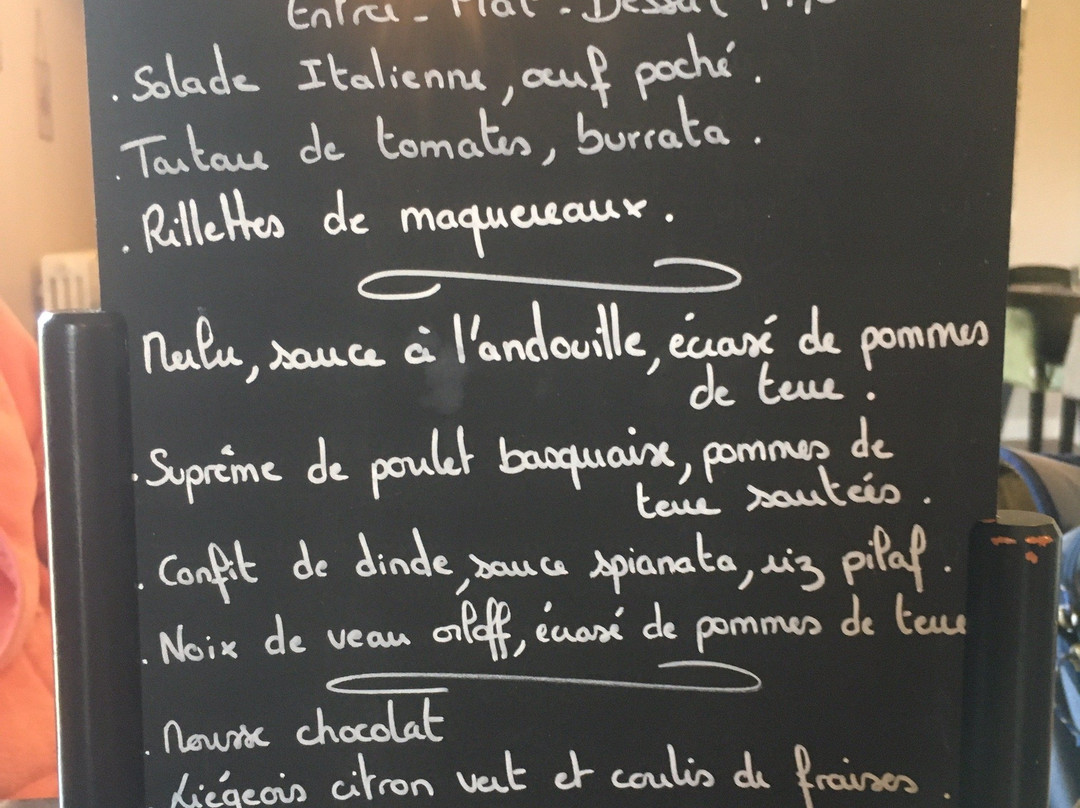 Entrée - Plat - Dessert
. Salade Italienne, œuf poché.
. Tartare de tomates, burrata.
. Rillettes de maquereaux.
Merlu, sauce à l'andouille, écrasé de pommes
de terre.
. Suprême de poulet basquaise, pommes de
terre sautées.
. Confit de dinde, sauce spianata, riz pilaf.
. Noix de veau orloff, écrasé de pommes de terre
. Mousse chocolat
Liégeois citron vert et coulis de fraises.